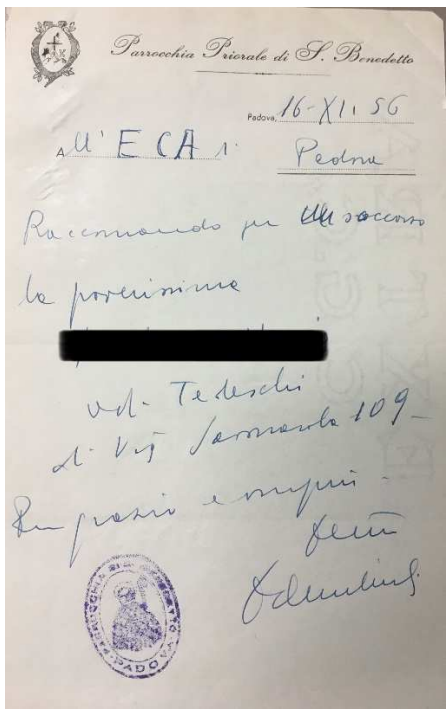 Parrocchia Priorale di S. Benedetto
Padova, 16-XI. 56
All' E C A di
Padova
Raccomando per un soccorso
la poverissima
ved. Tedeschi
di Via Savonarola 109-
Ringrazio e ossequi -
PARROCCHIA DI S. BENEDETTO
PADOVA